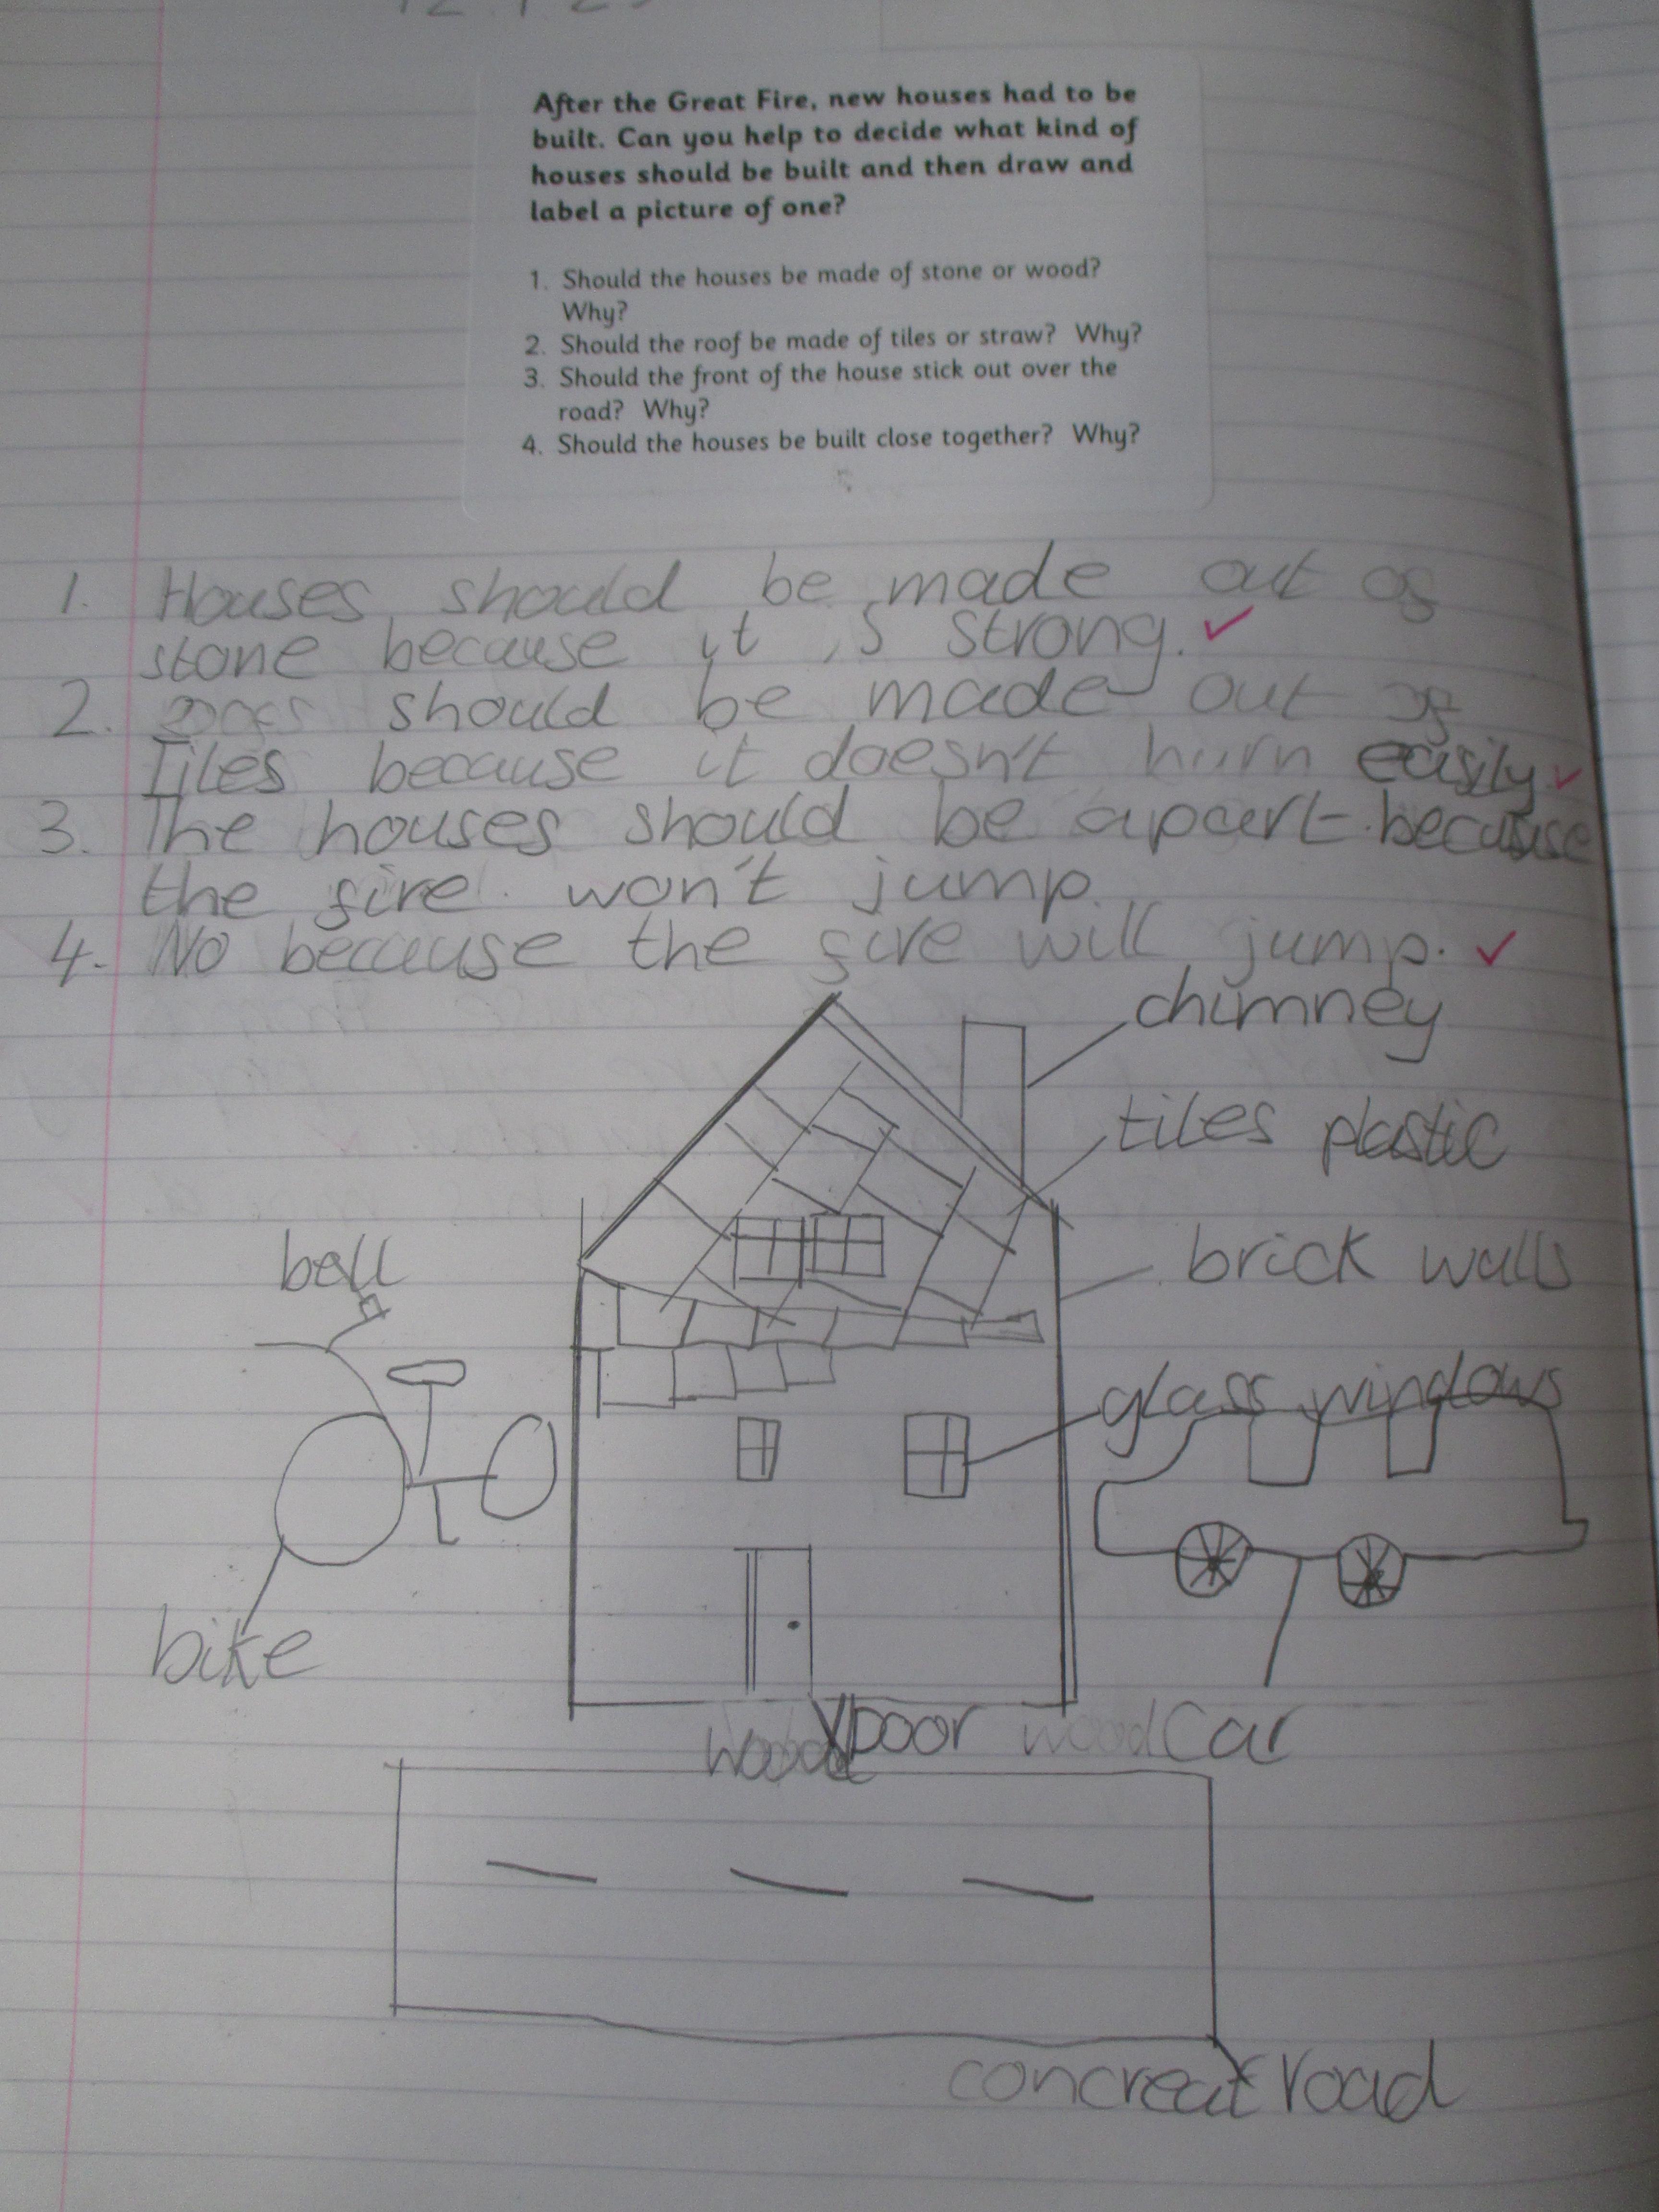 After the Great Fire, new houses had to be
built. Can you help to decide what kind of
houses should be built and then draw and
label a picture of one?
1. Should the houses be made of stone or wood?
Why?
2. Should the roof be made of tiles or straw? Why?
3. Should the front of the house stick out over the
road? Why?
4. Should the houses be built close together? Why?
1. Houses should be made out of
stone because it is strong.
2. should be made out of
Tiles because it doesn't burn easily
3. The houses should be apart because
the fire won't jump.
4. No because the fire will jump.
chimney
tiles plastic
brick walls
bell
glass windows
bike
wood Door wood Car
concreat road